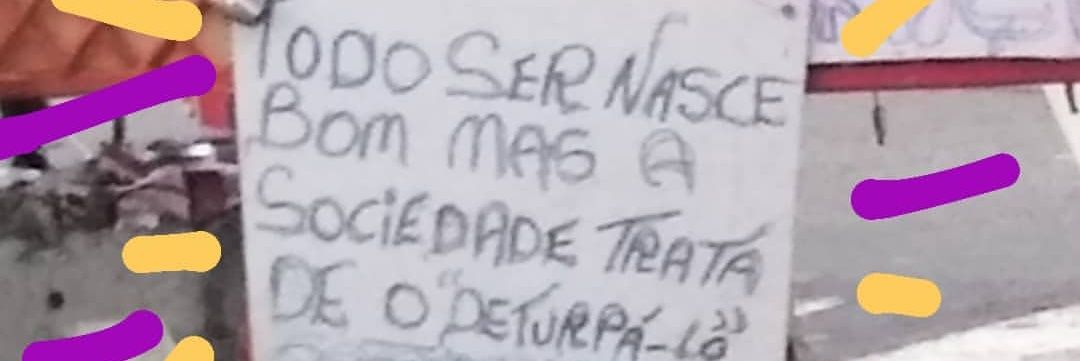 TODO SER NASCE
BOM MAS A
SOCIEDADE TRATA
DE O "DETURPÁ-LO"